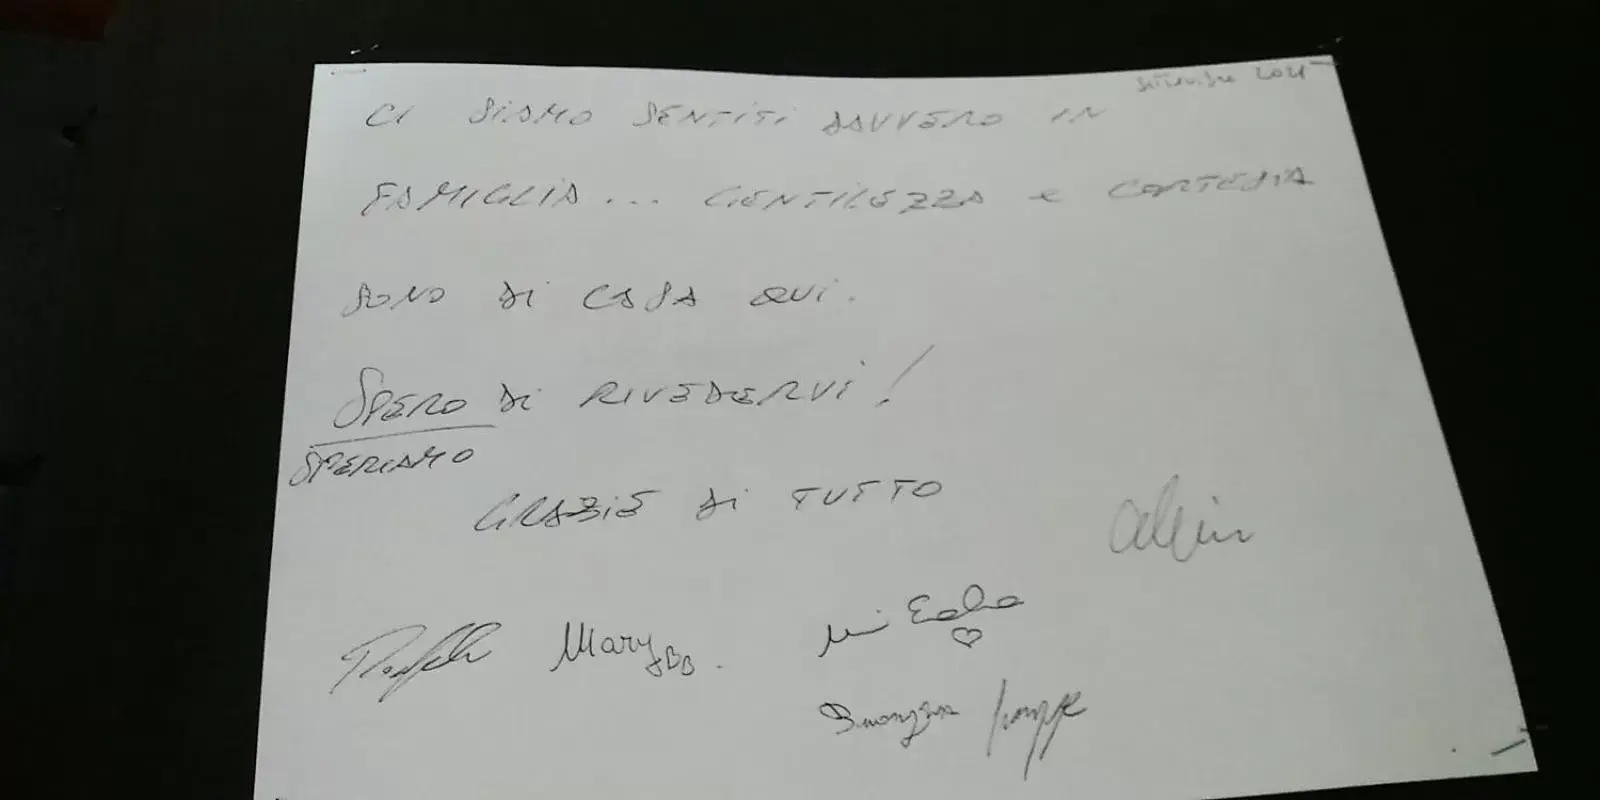 settembre 2021
CI SIAMO SENTITI DAVVERO IN
FAMIGLIA... GENTILEZZA e CORTESIA
SONO DI CASA QUI.
SPERO DI RIVEDERVI!
SPERIAMO
GRAZIE DI TUTTO
Mary